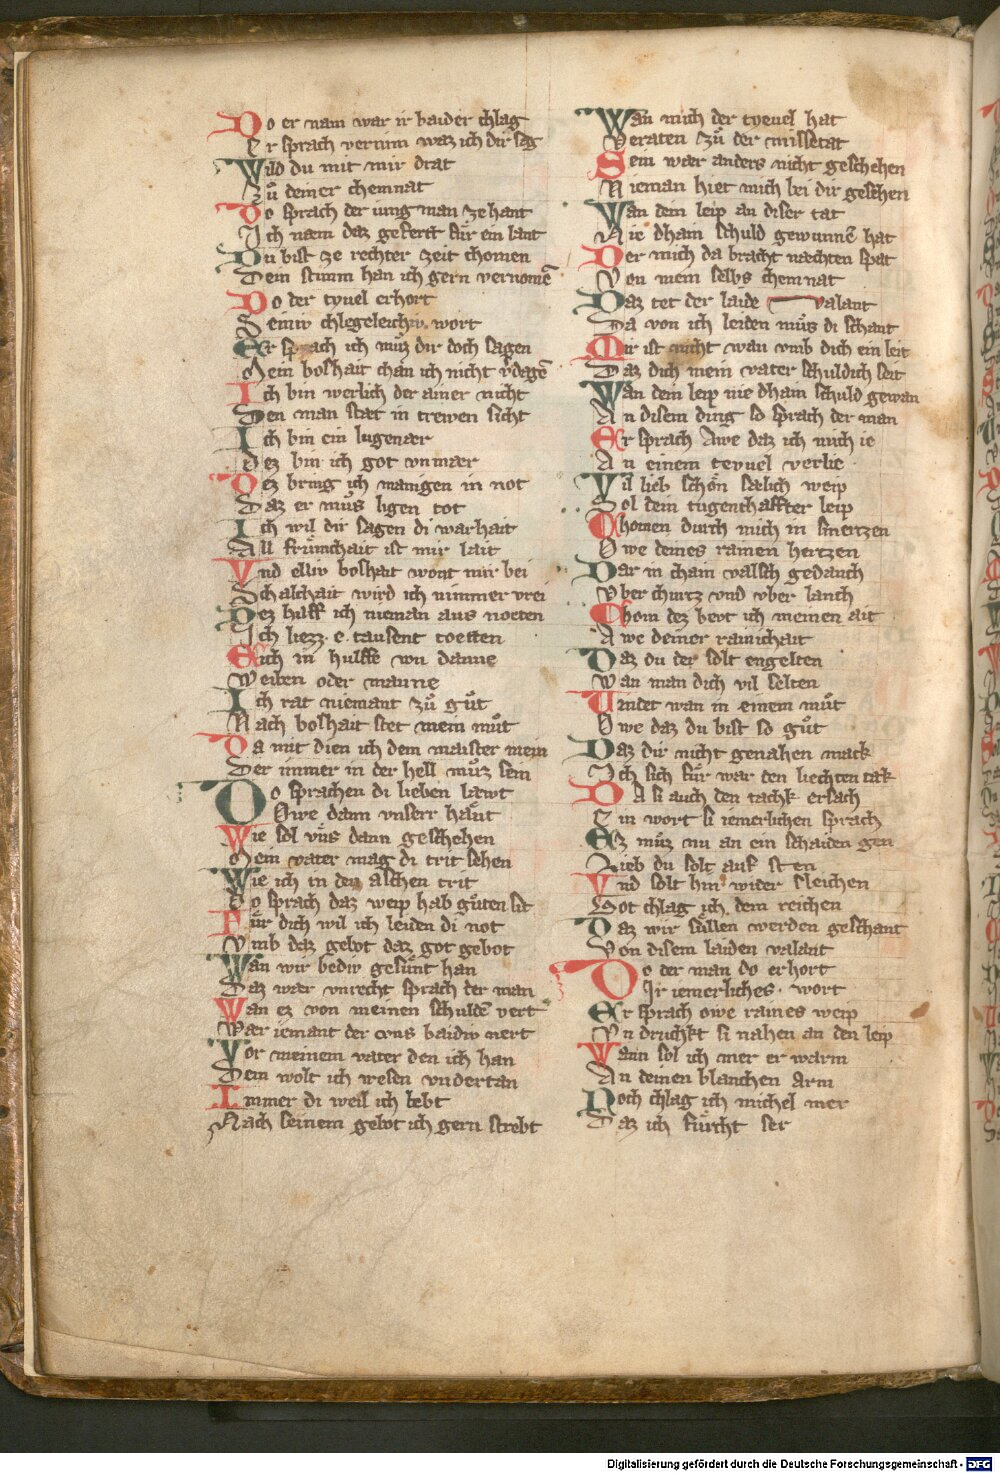 Do er nam war ir baider chlag
Er sprach vernim waz ich dir sag
Wild du mit mir drat
Zů deiner chemnat
Do sprach der iung man ze hant
Ich naem daz gefertt für ein lant
Du bist ze rechter zeit chomen
Dein stimm han ich gern vernomē
Do der tyuel erhort
Seiniv chlegeleichiv wort
Er sprach ich můz dir doch sagen
Mein boshait chan ich nicht v̄dagē
Ich bin werlich der ainer nicht
Den man staet in trewen sicht
Ich bin ein lugenaer
Dez bin ich got vnmaer
Dez bring ich manigen in not
Daz er můs ligen tot
Ich wil dir sagen di warhait
All frümchait ist mir lait
Vnd elliv boshait wont mir bei
Schalchait wird ich nimmer vrei
Dez hilff ich nieman aus noeten
Ich liezz e tausent toetten
E ich in hulffe vō danne
Weiben oder manne
Ich rat niemant zů gůt
Nach boshait stet mein můt
Da mit dien ich dem maister mein
Der immer in der hell můz sein
Do sprachen di lieben laewt
Owe dann vnserr haüt
Wie sol vns dann geschehen
Mein vater mag di trit sehen
Wie ich in den aschen trit
Do sprach daz weip hab gůten sit
Für dich wil ich leiden di not
Vmb daz gelot daz got gebot
Wan wir bediv gesünt han
Daz waer vnrecht sprach der man
Wan ez von meinen schuldē vert
War iemant der vns baidiv nert
Vor meinem vater den ich han
Dem wolt ich wesen vndertan
Immer di weil ich lebt
Nach seinem gelot ich gern strebt
Wan mich der tyeuel hat
Veraten zů der missetat
Sein waer anders nicht geschehen
Nieman hiet mich bei dir gesehen
Wan dein leip an diser tat
Nie dhain schuld gewunnē hat
Der mich da bracht nachten spat
Von mein selbs chemnat
Daz tet der laide valant
Da von ich leiden můs di schant
Mir ist nicht wan vmb dich ein leit
Daz dich mein vater schuldich seit
Wan dein leip nie dhain schuld gewan
An disem ding so sprach der man
Er sprach Awe daz ich mich ie
An einem teyuel verlie
Vil lieb schön saelich weip
Sol dein tugenthaffter leip
Chomen durch mich in smertzen
Owe deines rainen hertzen
Dar in chain valsch gedanch
Vber churtz vnd vber lanch
Chom dez bevt ich meinen ait
Awe deiner rainichait
Daz du der solt engelten
Wan man dich vil selten
Vandet wan in einem můt
Owe daz du bist so gůt
Daz dir nicht genahen mack
Ich sich für war den liechten tak
Da si auch den tachk ersach
Ein wort si iemerlichen sprach
Ez můz nu an ein schaiden gen
Lieb du solt auf sten
Vnd solt hin wider sleichen
Got chlag ich dem reichen
Daz wir süllen werden geschant
Von disem laiden valant
Do der man do erhort
Ir iemerliches wort
Er sprach owe raines weip
Vn druchkt si nahen an den leip
Wann sol ich mer er warm
An deinen blanchen arm
Noch chlag ich michel mer
Daz ich fürcht ser
Digitalisierung gefördert durch die Deutsche Forschungsgemeinschaft - DFG